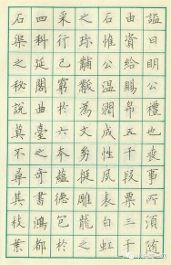 謚曰明公禮也喪事所須隨
由資給賜帛五千段粟三千
石惟公溫潤成性夙表白虹
之珍黼黻為文幼挺雕龍之
采行己窮於六本蘊德包於
四科延閣曲臺之奇書鴻都
石渠之秘說莫不尋其枝葉